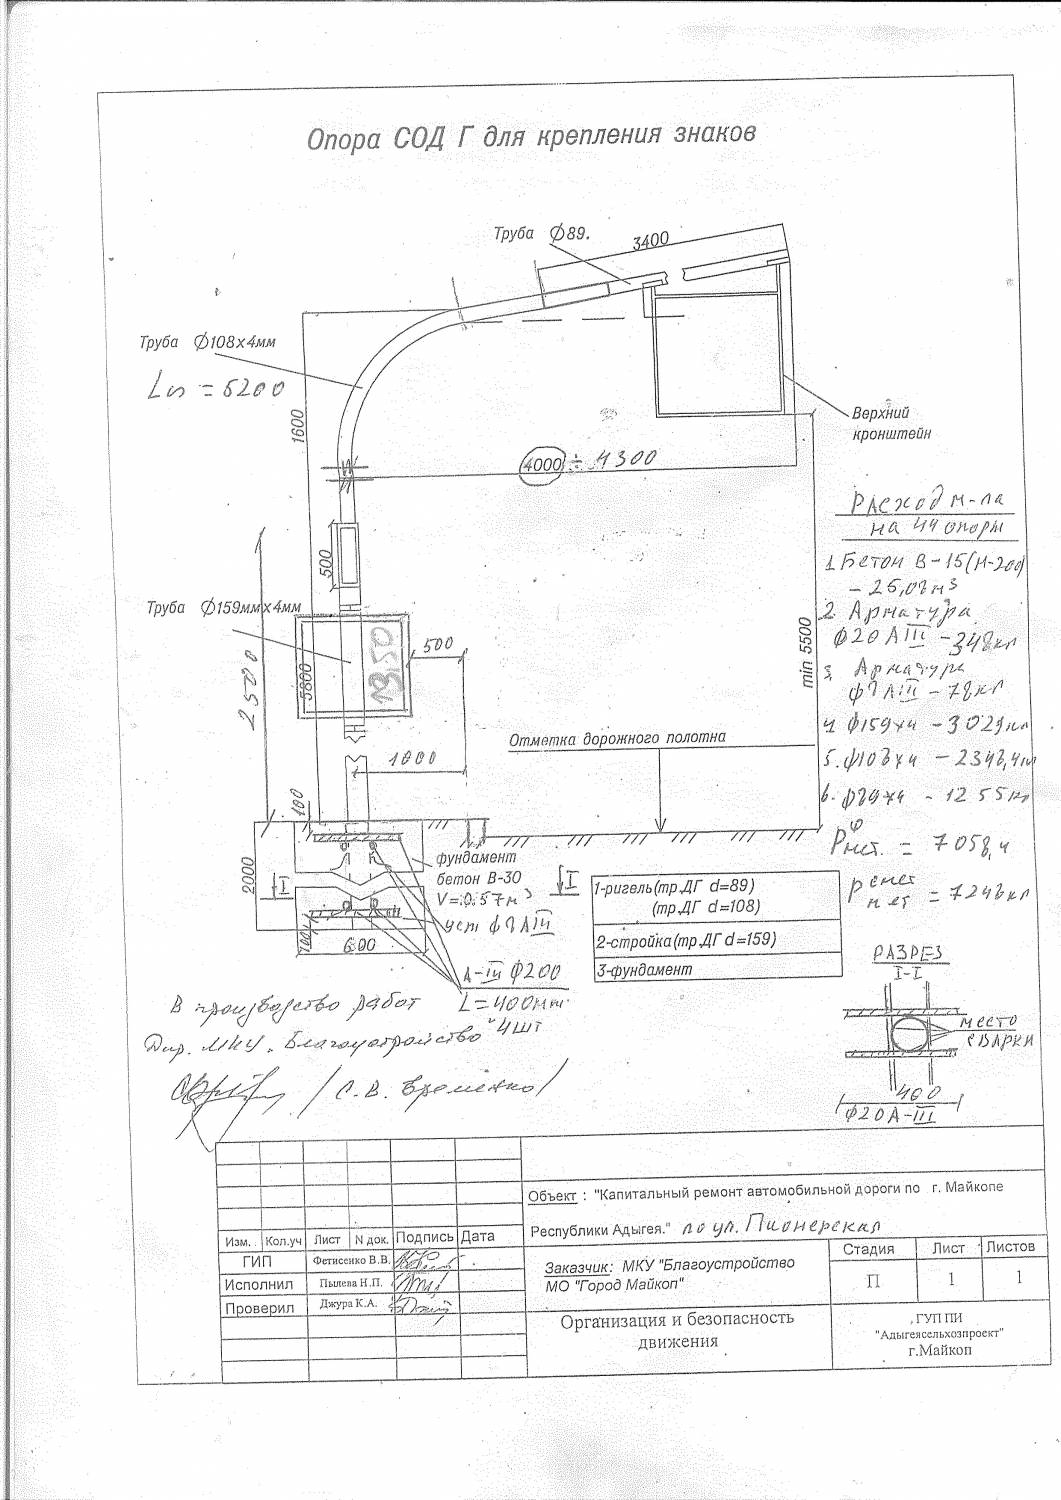 Опора СОД Г для крепления знаков
Труба Ф89.
3400
Труба Ф108х4мм
= 5200
1600
Верхний
кронштейн
4000 ÷ 4300
Расход м-ла
на 44 опоры
1. Бетон В-15(М-200)
- 25,08м³
2. Арматура
Ф20 АIII - 348кг
3. Арматура
ф8 АIII - 78кг
4. ф159х4 - 3029кг
5. ф108х4 - 2348,4кг
6. ф89х4 - 1255кг
Рмет. = 7058,4
Р смет мет = 7248кг
500
Труба Ф159мм х 4мм
2500
5800
1350
500
min 5500
Отметка дорожного полотна
1000
100
2000
I
фундамент
бетон В-30
V=0.57м³
уст ф8 АIII
I
100
600
А-III Ф200
L=400мм
4шт
1-ригель(тр.ДГ d=89)
(тр.ДГ d=108)
2-стройка(тр.ДГ d=159)
3-фундамент
РАЗРЕЗ
I-I
МЕСТО
СВАРКИ
400
Ф20А-III
В производство работ
Дир. МКУ "Благоустройство"
/ С.В. Временко/
Объект : "Капитальный ремонт автомобильной дороги по г. Майкопе
Республики Адыгея." по ул. Пионерская
Изм. Кол.уч Лист N док. Подпись Дата
ГИП Фетисенко В.В.
Исполнил Пылева Н.П.
Проверил Джура К.А.
Заказчик: МКУ "Благоустройство
МО "Город Майкоп"
Стадия Лист Листов
П 1 1
Организация и безопасность
движения
ГУП ПИ
"Адыгеясельхозпроект"
г.Майкоп